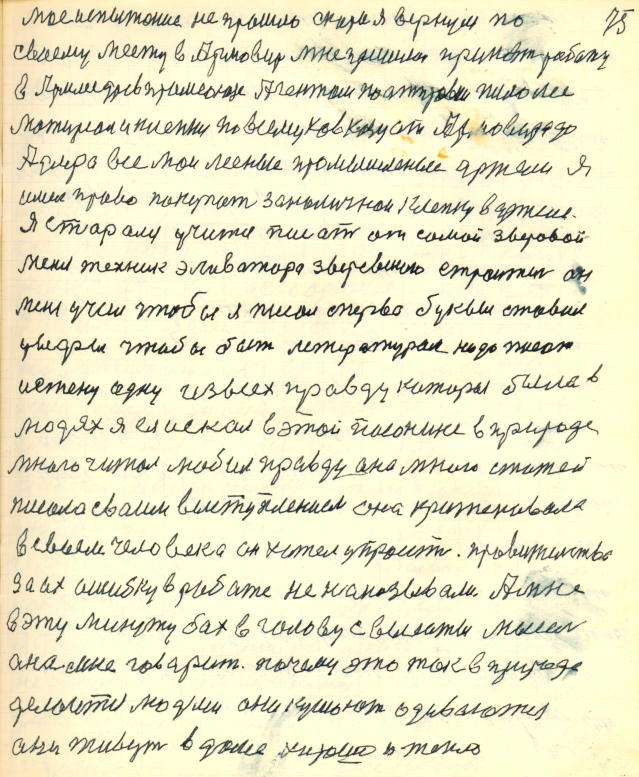 75
мое испытание не прошло скора я вернул по
своему месту в Армовир мне пришлос принят работу
в Агентом по
материал и клепки по всему
Адлера все мои лесные промышленые артели я
имел право покупат за наличной клепку в артели.
Я старался учится писат он самой
меня техник эливатора строител он
меня учил чтобы я писал сперва буквы ставил
цыфры чтобы быт летературам надо писат
истену одну из всех правду которы была в
людях я ея искал в этой в природе
много читал любил правду она много статей
писала сваим выступлением она критековала
в человека он хотел устроит. правителство
за ах ошибку в работе не наказывали А мне
в эту минуту бах в голову с высоты мысел
она мне говарит. почему это так в природе
делоится людми они кушают одеваются
они живут в доме хорошо и тепло